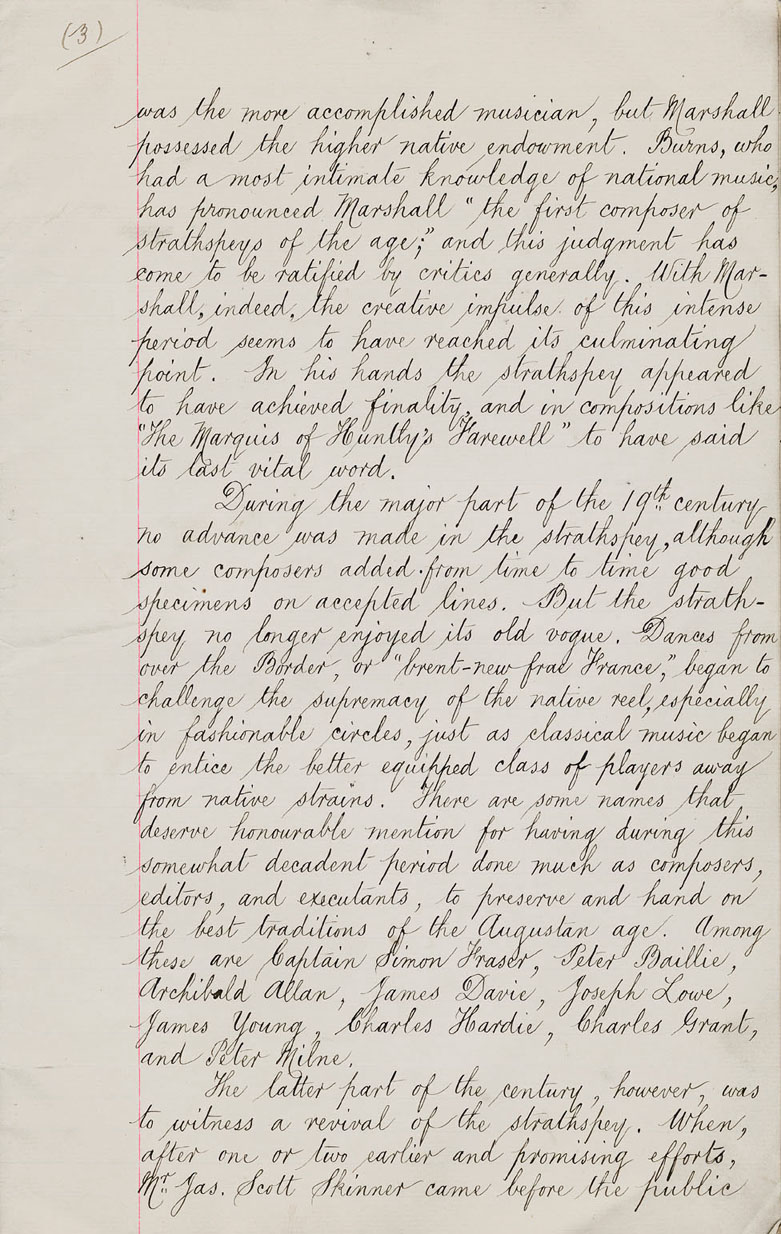 (3)
was the more accomplished musician, but Marshall
possessed the higher native endowment. Burns, who
had a most intimate knowledge of national music,
has pronounced Marshall "the first composer of
strathspeys of the age;" and this judgment has
come to be ratified by critics generally. With Mar-
shall, indeed, the creative impulse of this intense
period seems to have reached its culminating
point. In his hands the strathspey appeared
to have achieved finality, and in compositions like
"The Marquis of Huntly's Farewell" to have said
its last vital word.
During the major part of the 19th century
no advance was made in the strathspey, although
some composers added from time to time good
specimens on accepted lines. But the strath-
spey no longer enjoyed its old vogue. Dances from
over the Border, or "brent-new frae France," began to
challenge the supremacy of the native reel, especially
in fashionable circles, just as classical music began
to entice the better equipped class of players away
from native strains. There are some names that
deserve honourable mention for having during this
somewhat decadent period done much as composers,
editors, and executants, to preserve and hand on
the best traditions of the Augustan age. Among
these are Captain Simon Fraser, Peter Baillie,
Archibald Allan, James Davie, Joseph Lowe,
James Young, Charles Hardie, Charles Grant,
and Peter Milne.
The latter part of the century, however, was
to witness a revival of the strathspey. When,
after one or two earlier and promising efforts,
Mr. Jas. Scott Skinner came before the public